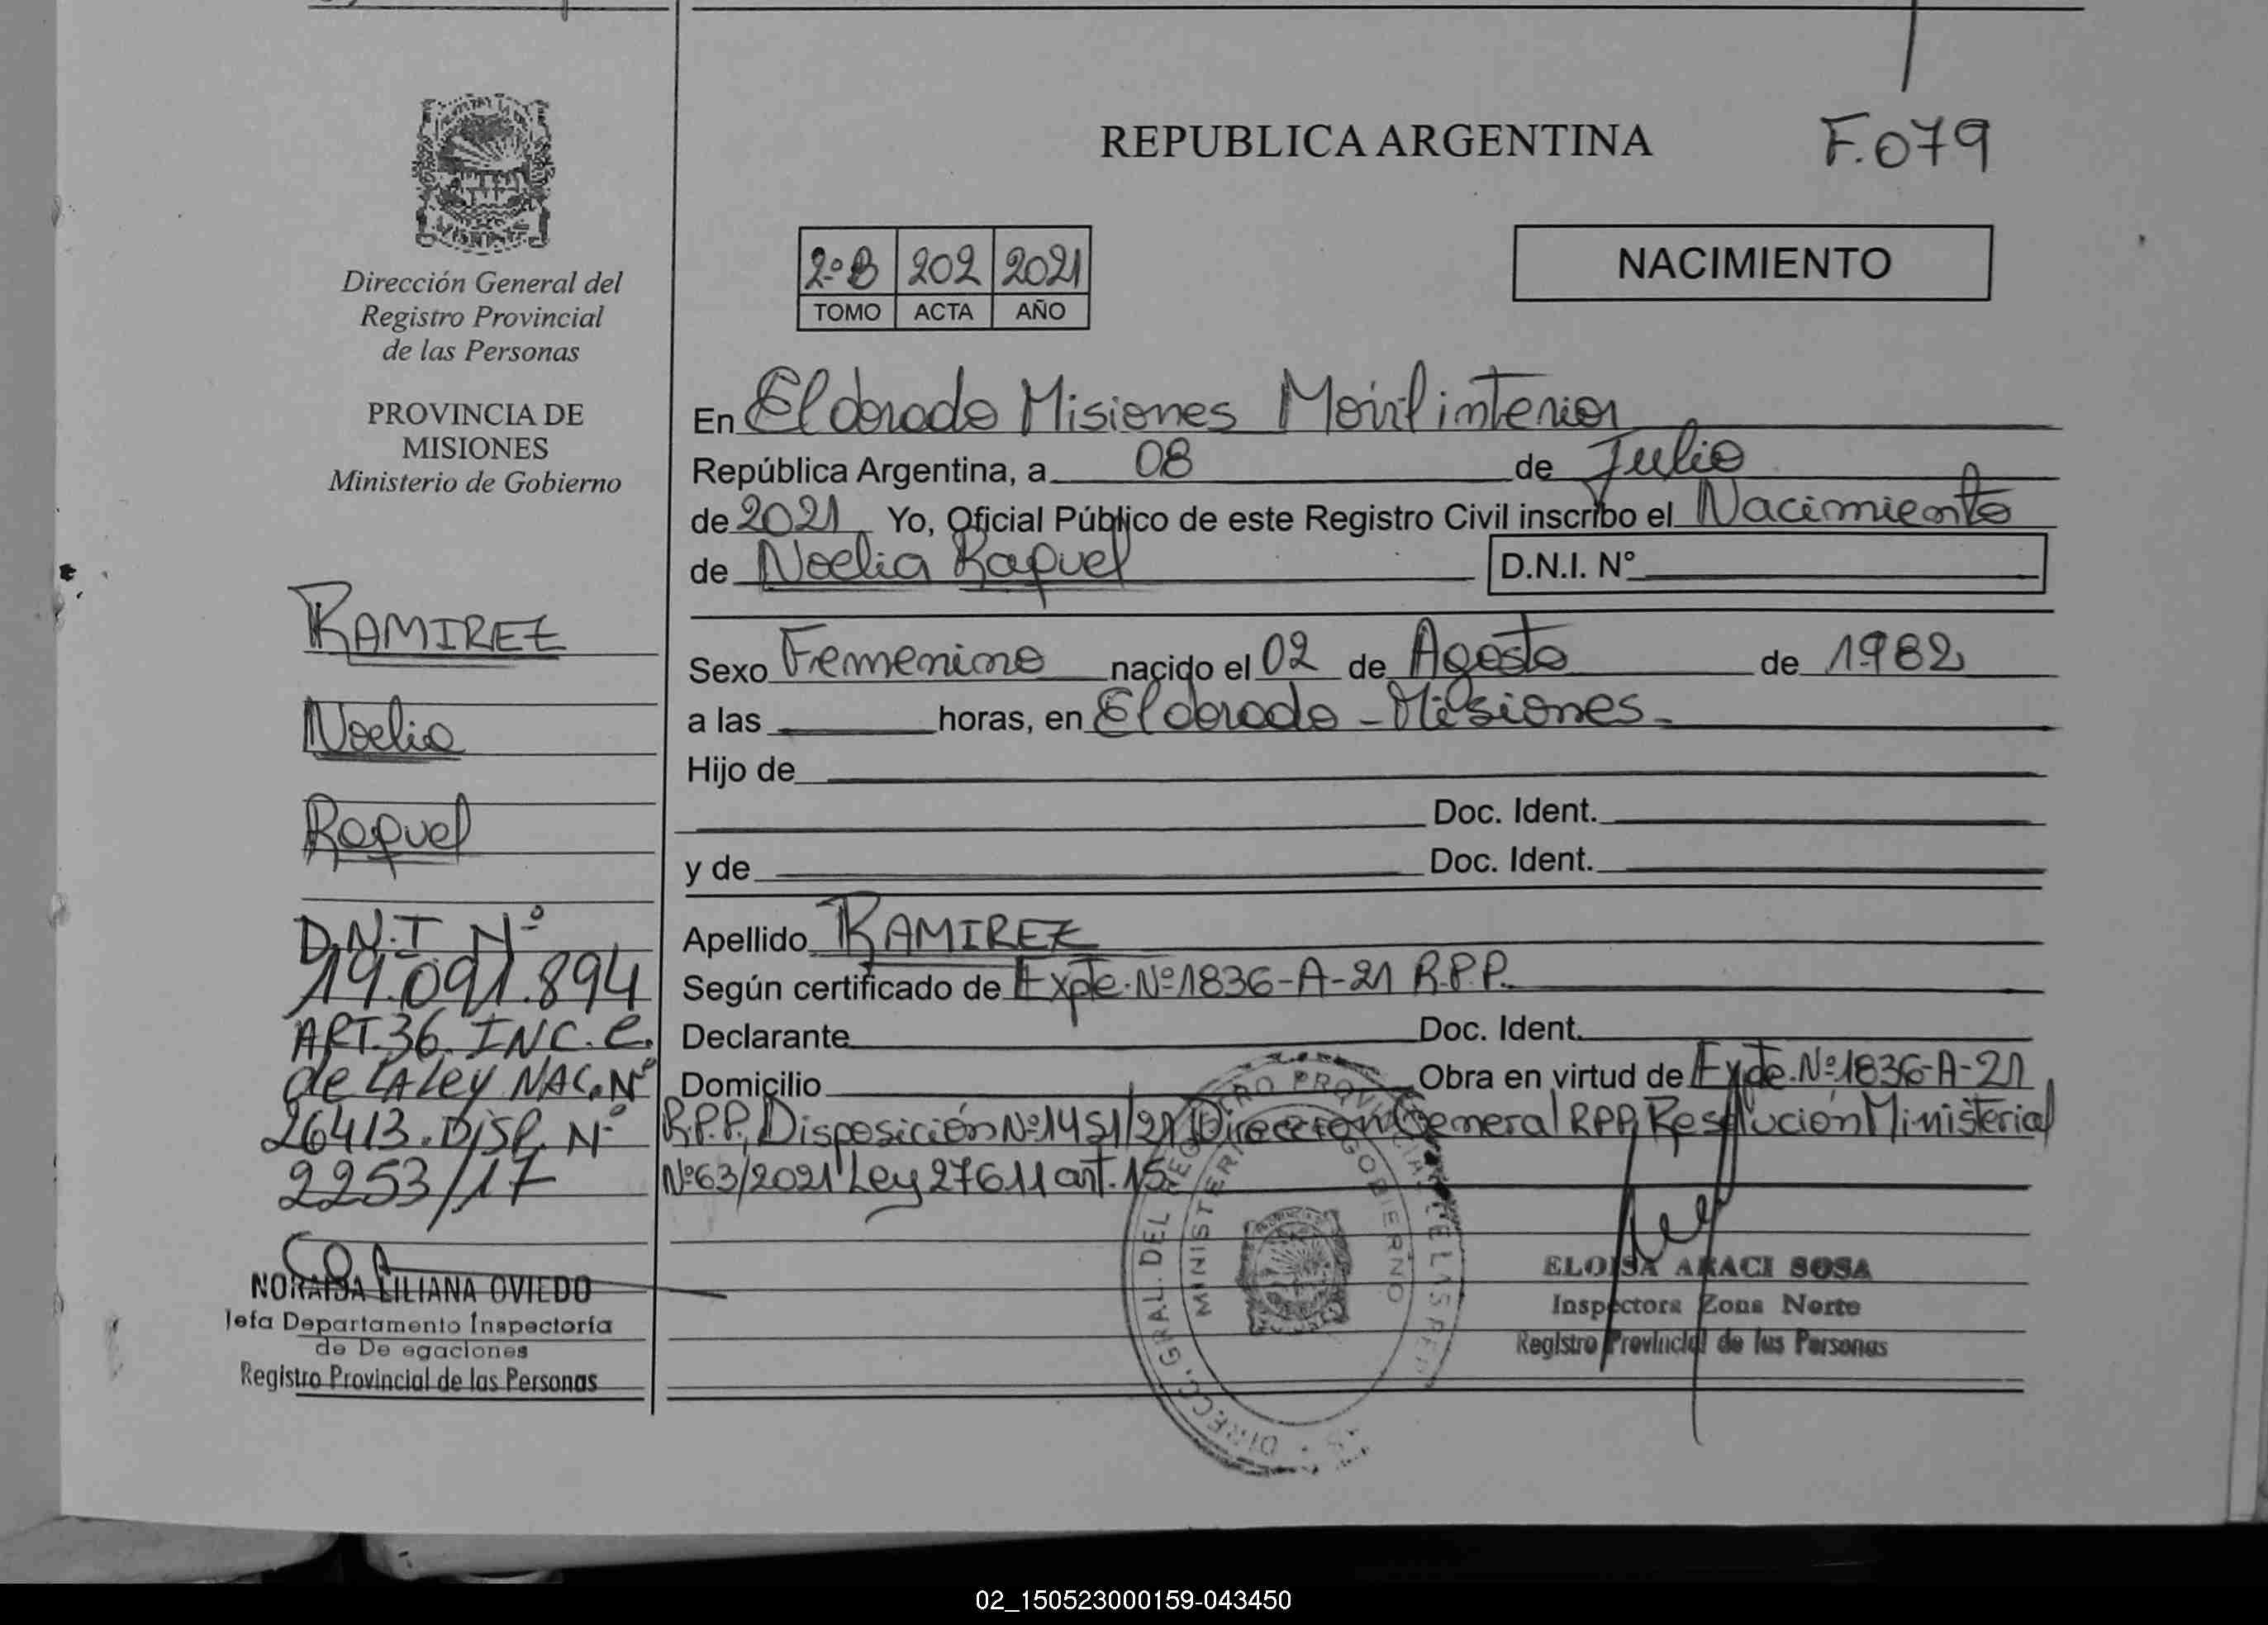 REPUBLICA ARGENTINA
F.079
Dirección General del
Registro Provincial
de las Personas
PROVINCIA DE
MISIONES
Ministerio de Gobierno
RAMIREZ
Noelia
Raquel
D.N.I Nº
19.091.894
ART.36. INC. C.
de LA Ley NAC. Nº
26413. DISP. Nº
2253/17
NORAIDA LILIANA OVIEDO
Jefa Departamento Inspectoría
de De egaciones
Registro Provincial de las Personas
2º B 202 2021
TOMO ACTA AÑO
NACIMIENTO
En Eldorado Misiones Movil interior
República Argentina, a 08 de Julio
de 2021 Yo, Oficial Público de este Registro Civil inscribo el Nacimiento
de Noelia Raquel D.N.I. Nº
Sexo Femenino nacido el 02 de Agosto de 1982
a las horas, en Eldorado - Misiones.
Hijo de
Doc. Ident.
y de Doc. Ident.
Apellido RAMIREZ
Según certificado de Expte. Nº 1836-A-21 R.P.P.
Declarante Doc. Ident.
Domicilio Obra en virtud de Expte. Nº 1836-A-21
R.P.P, Disposición Nº 1451/21 Direccion General RPP, Resolución Ministerial
Nº 63/2021 Ley 27611 art. 15.
DIRECC. GRAL. DEL REGISTRO PROVINCIAL DE LAS PER
MINISTERI GOBIERNO
ELOISA ARACI SOSA
Inspectora Zona Norte
Registro Provincial de las Personas
02_150523000159-043450